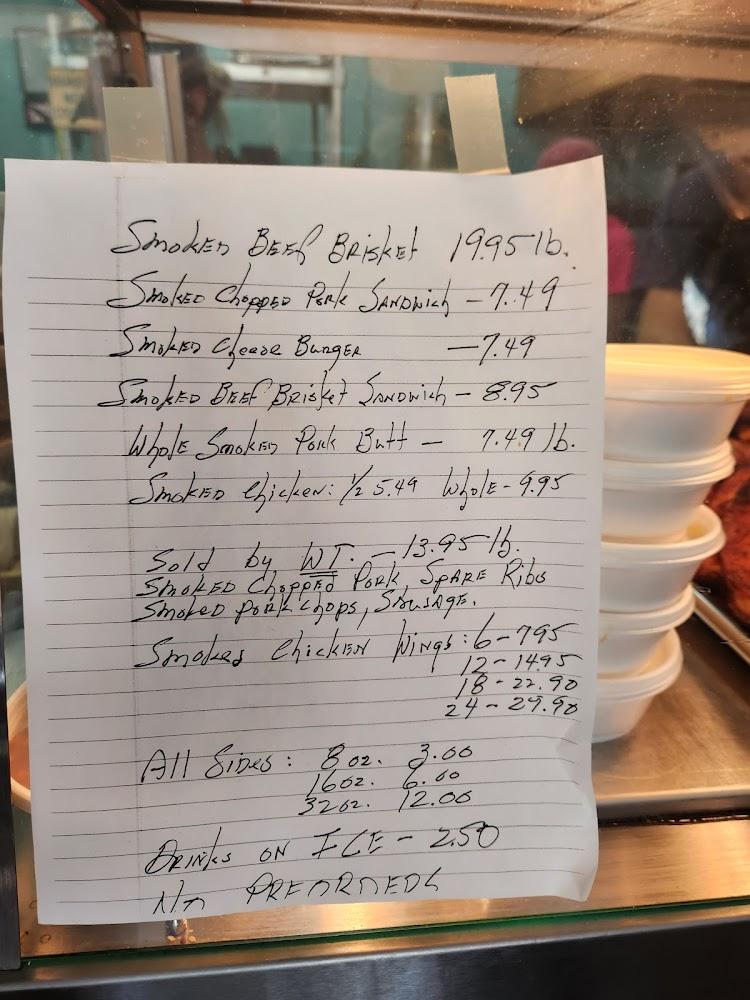 Smoked Beef Brisket 19.95 lb.
Smoked Chopped Pork Sandwich - 7.49
Smoked Cheese Burger - 7.49
Smoked Beef Brisket Sandwich - 8.95
Whole Smoked Pork Butt - 7.49 lb.
Smoked Chicken: 1/2 5.49 Whole - 9.95
Sold by WT. - 13.95 lb.
Smoked Chopped Pork, Spare Ribs
Smoked pork chops, Sausage.
Smoked Chicken Wings: 6 - 795
12 - 1495
18 - 22.90
24 - 29.90
All Sides: 8 oz. 3.00
16 oz. 6.00
32 oz. 12.00
Drinks on ICE - 2.50
No PREORDERS